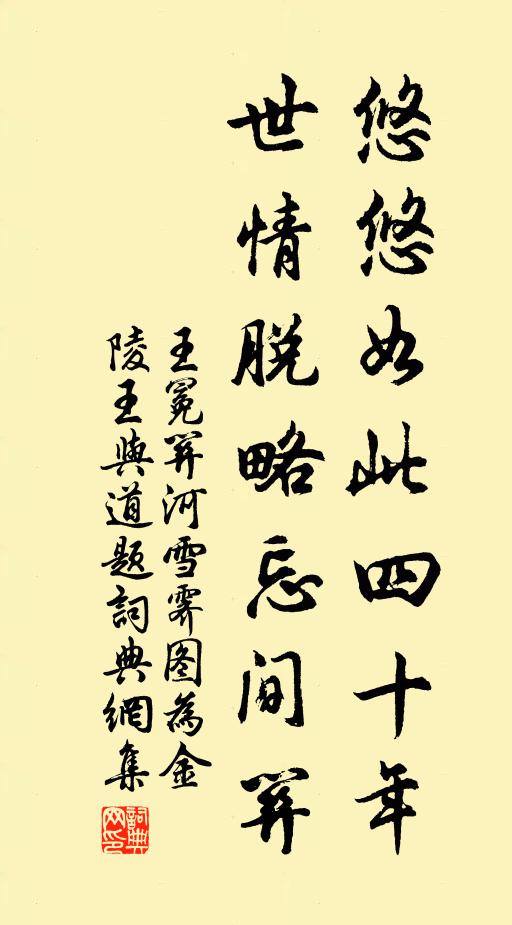 悠悠如此四十年
世情脱略忘间關
王冕關河雪霽图為金
陵王與道題詞典網集
詞典
网印